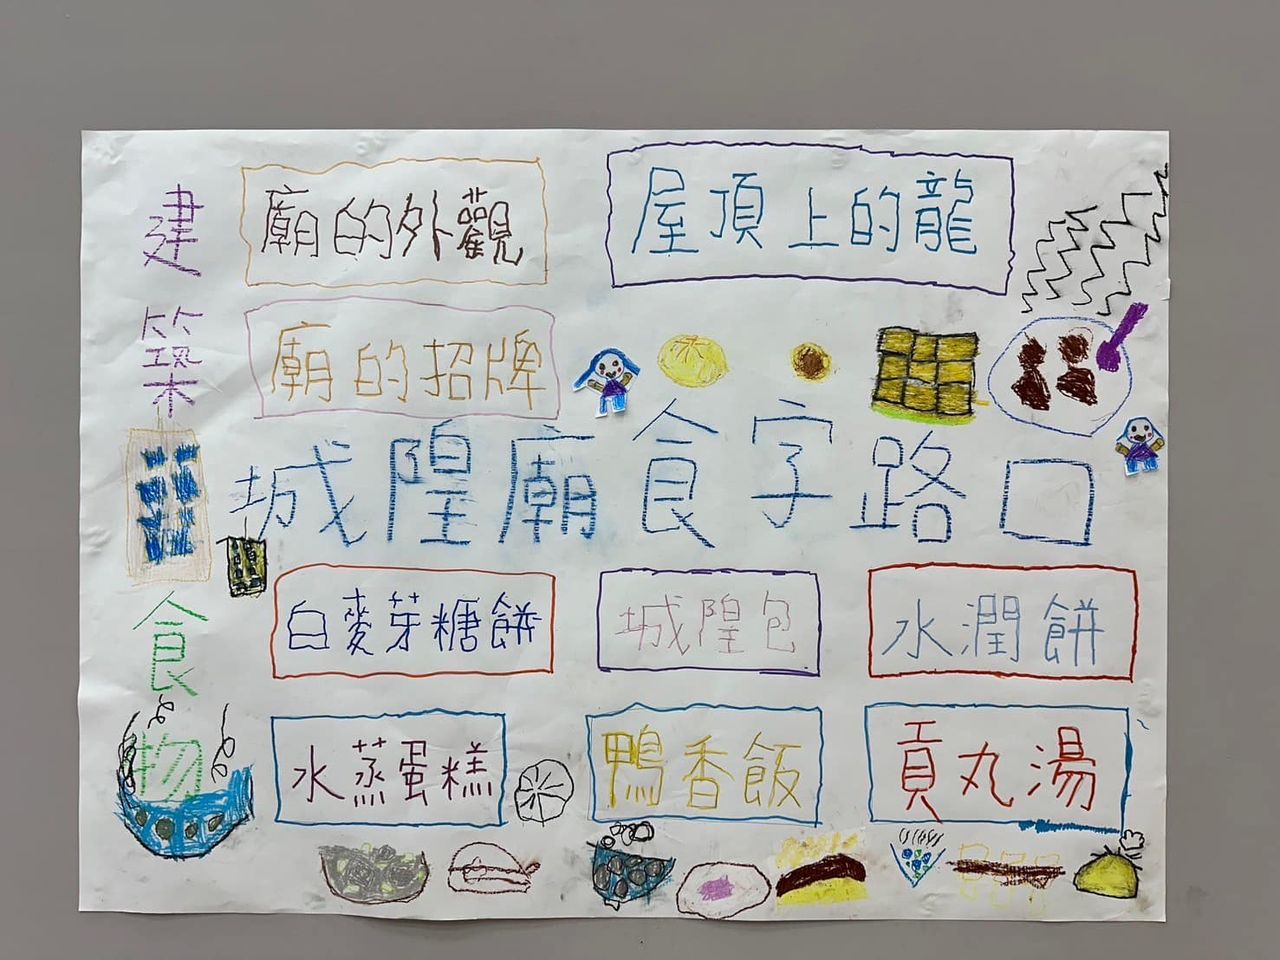 建築
廟的外觀
屋頂上的龍
廟的招牌
城隍廟食字路口
食物
白麥芽糖餅
城隍包
水潤餅
水蒸蛋糕
鴨香飯
貢丸湯